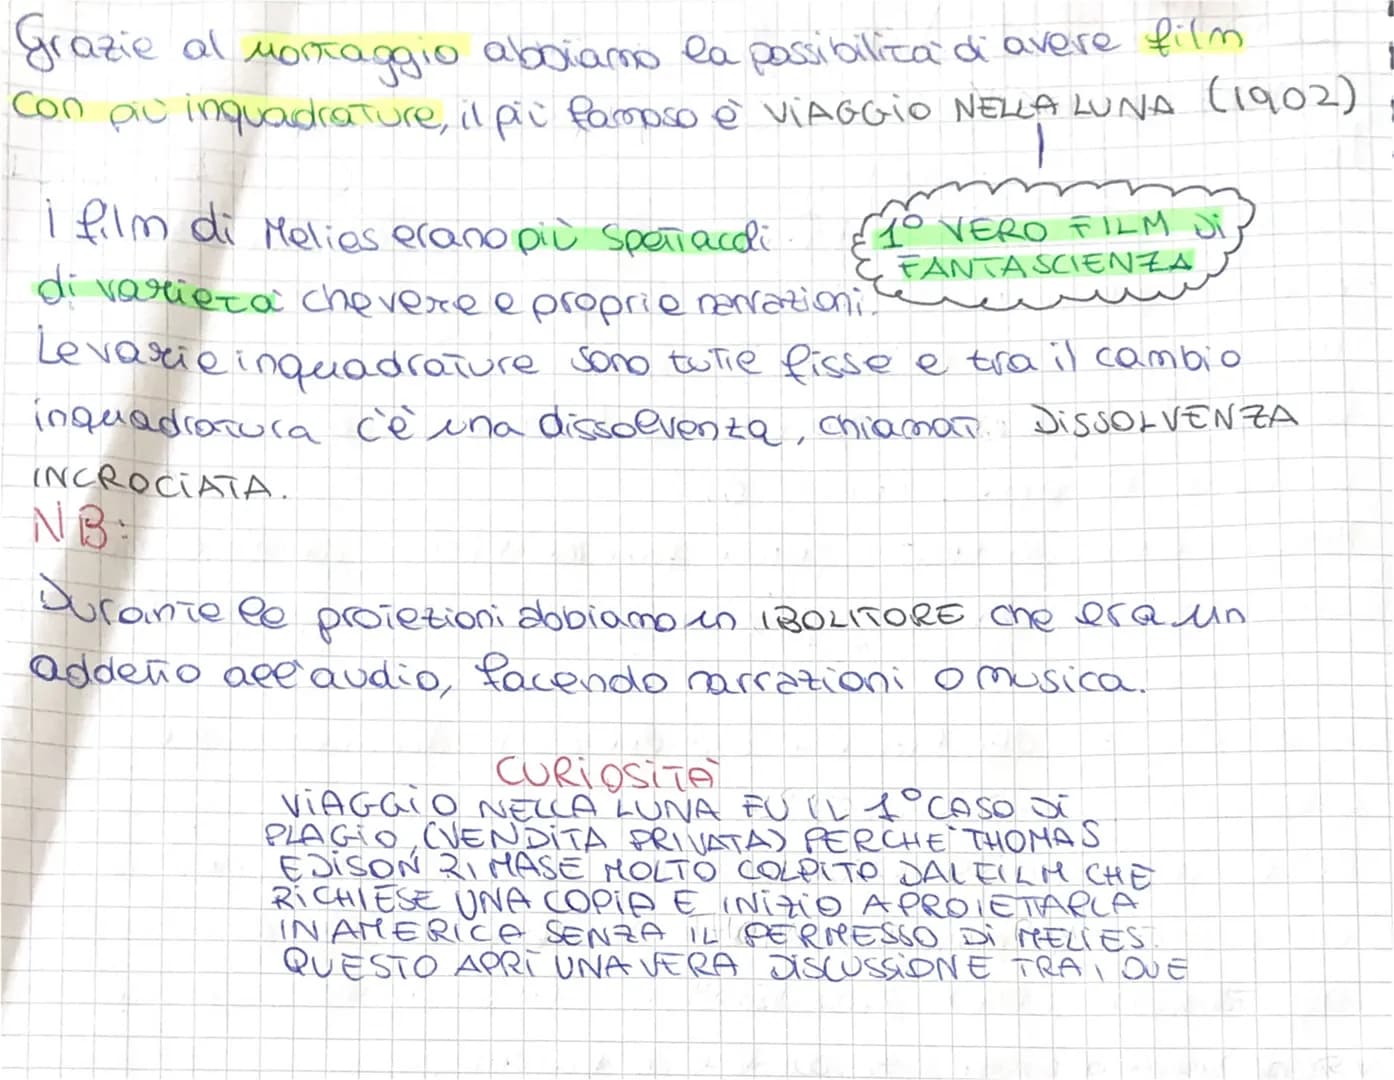 Grazie al montaggio abbiamo la possibilità di avere film
con più inquadrature, il più famoso è VIAGGIO NELLA LUNA (1902)
1° VERO FILM DI
FANTASCIENZA
i film di Melies erano più spettacoli
di varietà che vere e proprie narrazioni.
Le varie inquadrature sono tutte fisse e tra il cambio
inquadratura c'è una dissolvenza, chiamat DISSOLVENZA
INCROCIATA.
NB:
Durante le proiezioni abbiamo un IBOLITORE che era un
addetto all'audio, facendo narrazioni o musica.
CURIOSITÀ
VIAGGIO NELLA LUNA FU IL 1° CASO DI
PLAGIO (VENDITA PRIVATA) PERCHE' THOMAS
EDISON RIMASE MOLTO COLPITO DAL FILM CHE
RICHIESE UNA COPIA E INIZIO A PROIETTARLA
IN AMERICA SENZA IL PERMESSO DI MELIES.
QUESTO APRÌ UNA VERA DISCUSSIONE TRA I DUE